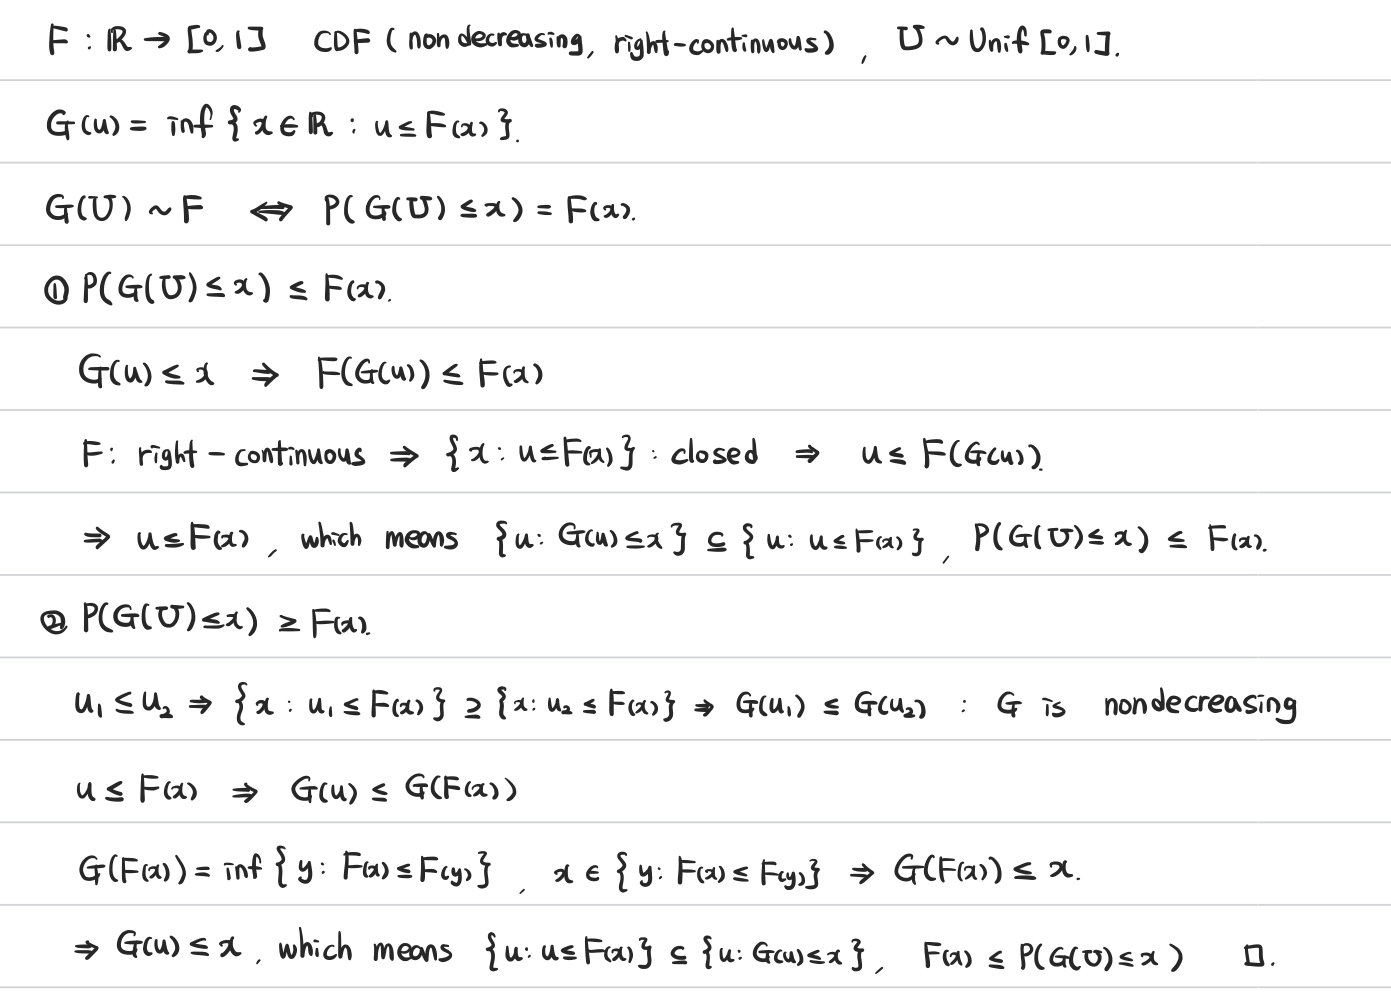 F : ℝ → [0, 1] CDF ( nondecreasing, right-continuous ) , U ~ Unif [0, 1].
G(u) = inf { x ∈ ℝ : u ≤ F(x) }.
G(U) ~ F ⇔ P( G(U) ≤ x ) = F(x).
① P( G(U) ≤ x ) ≤ F(x).
G(u) ≤ x ⇒ F(G(u)) ≤ F(x)
F : right-continuous ⇒ { x : u ≤ F(x) } : closed ⇒ u ≤ F(G(u)).
⇒ u ≤ F(x) , which means { u : G(u) ≤ x } ⊆ { u : u ≤ F(x) } , P( G(U) ≤ x ) ≤ F(x).
② P( G(U) ≤ x ) ≥ F(x).
u₁ ≤ u₂ ⇒ { x : u₁ ≤ F(x) } ⊇ { x : u₂ ≤ F(x) } ⇒ G(u₁) ≤ G(u₂) : G is nondecreasing
u ≤ F(x) ⇒ G(u) ≤ G(F(x))
G(F(x)) = inf { y : F(x) ≤ F(y) } , x ∈ { y : F(x) ≤ F(y) } ⇒ G(F(x)) ≤ x.
⇒ G(u) ≤ x , which means { u : u ≤ F(x) } ⊆ { u : G(u) ≤ x } , F(x) ≤ P( G(U) ≤ x ) □.